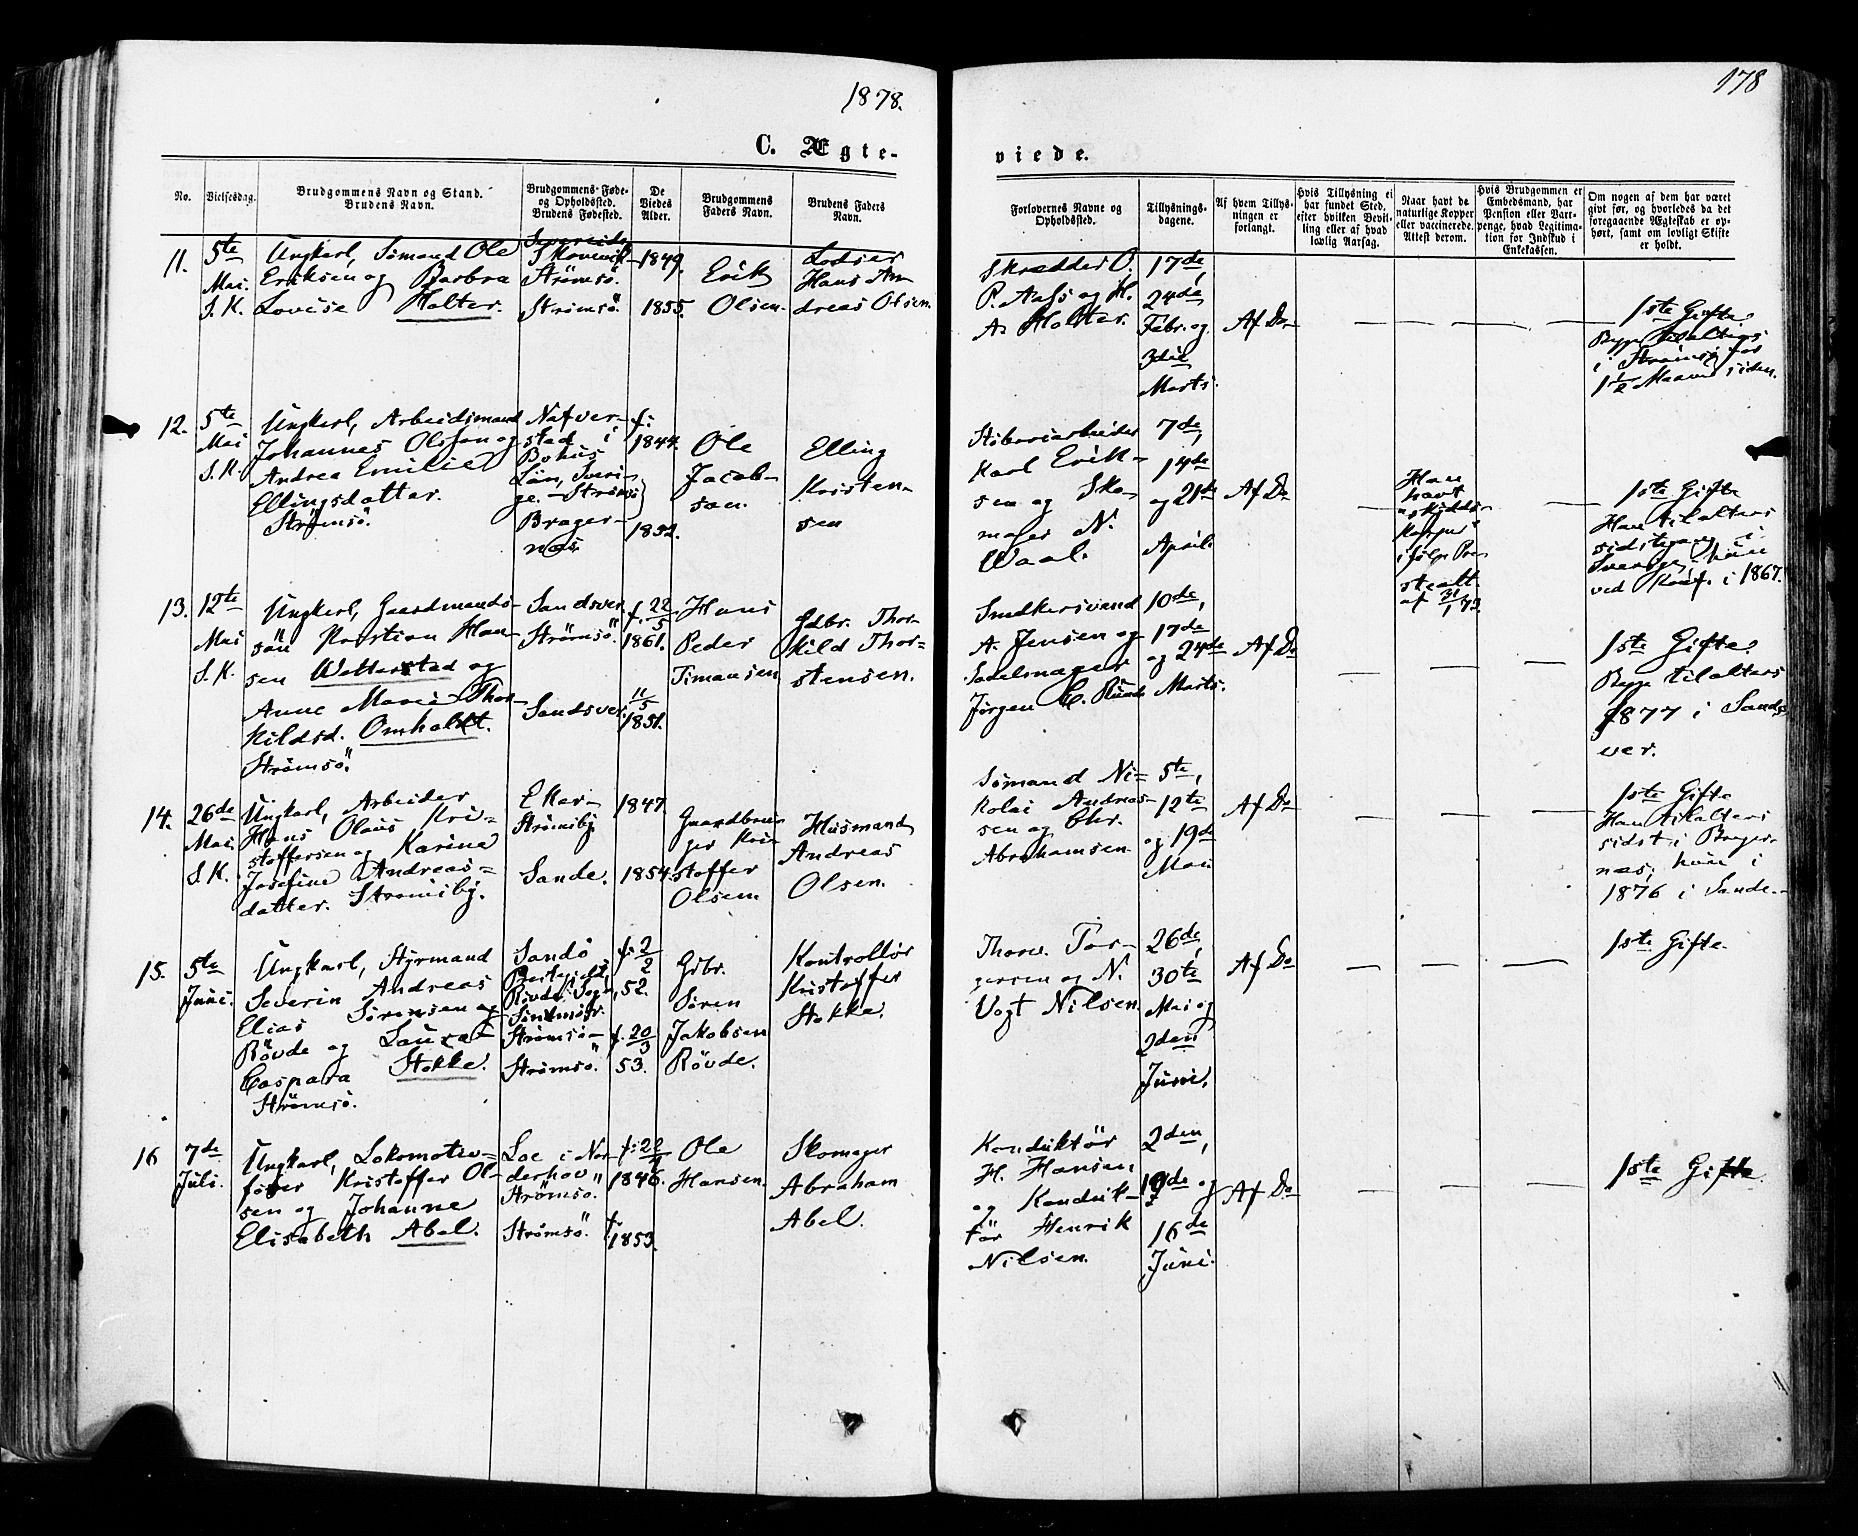 1878.
178
C. Ægte-
viede.
No.
Vielsesdag.
Brudgommens Navn og Stand.
Brudens Navn.
Brudgommens Føde-
og Opholdssted.
Brudens Fødested.
De
Viedes
Alder.
Brudgommens
Faders Navn.
Brudens Faders
Navn.
Forlovernes Navne og
Opholdssted.
Tillysnings-
dagene.
Af hvem Tillys-
ningen er
forlangt.
Hvis Tillysning ei
har fundet Sted,
efter hvilken Bevil-
ling eller af hvad
lovlig Aarsag.
Naar havt de
naturlige Kopper
eller vaccinerede.
Attest derom.
Hvis Brudgommen er
Embedsmand, har
Pension eller Vart-
penge, hvad Legitima-
tion for Indskud i
Enkekassen.
Om nogen af dem har været
givt før, og hvorledes da det
foregaaende Ægteskab er op-
hørt, samt om lovligt Skifte
er holdt.
11.
5te
Mai.
S. K.
Ungkarl, Sømand Ole
Eriksen og Barbra
Lovise Holter.
Skonevik-
Strømsö.
Strømsö.
1849.
1855.
Erik
Olsen.
Lodser
Hans An
dreas Olsen.
Skrædder O.
P. Aass og H.
A. Holter.
17de,
24de
Febr. og
3die
Marts.
Af Do
1ste Gifte.
Begge tilalters
i Strømsö for
1½ Maaned siden.
12.
5te
Mai
S. K.
Ungkarl, Arbeidsmand
Johannes Olsson og
Andrea Emilie
Ellingsdatter.
Strømsö.
Nafver-
stad i
Bohus
Län, Sveri-
ge. - Strømsö
Brager-
næs.
f:
1844.
1852.
Ole
Jacob-
son.
Elling
Kristen-
sen
Karl Erik-
sen og Sko-
mager N.
Waal.
7de,
14de
og 21de
April.
Af Do
Han
havt
Kopper
ifølge Præ
steatt.
af 31/1 73.
1ste Gifte
Han tilalters
sidstgang i
Sverige, hun
ved Konf. i 1867.
13.
12te
Mai
S. K.
Ungkarl, Gaardmands-
sön Kristian Han-
sen Wetterstad og
Anne Marie Thor-
kildsd. Omholdt.
Strømsö.
Sandsver.
Strømsö.
Sandsver.
f. 22/5
1861.
11/5
1851.
Hans
Peder
Timansen.
Gdbr. Thor-
kild Thor-
stensen.
Snedkersvend
A. Jensen og
Sadelmager
Jørgen C.
10de,
17de
og 24de
Marts.
Af Do
1ste Gifte.
Begge tilalters
1877 i Sands
ver.
14.
26de
Mai.
S. K.
Ungkarl, Arbeider
Hans Olaus Kri-
stoffersen og Karine
Josefine Andreas-
datter. Strømsby.
Eker-
Strømsby.
Sande.
1847.
1854.
Gaardbru-
ger Kri-
stoffer
Olsen.
Husmand
Andreas
Olsen.
Sømand Ni-
kolai Andreas-
sen og Chr.
Abrahamsen.
5te,
12te
og 19de
Mai.
Af Do
1ste Gifte
Han tilalters
sidst i Brager-
næs, hun i
1876 i Sande.
15.
5te
Juni.
Ungkarl, Styrmand
Severin Andreas
Elias Sørensen
Røvde og Laura
Caspara Stokke.
Strømsö.
Sandö
Præstegjeld,
Røvde Sogn,
Söndmöre.
Strømsö-
Strømsö.
f: 2/2
52.
f. 20/3
53.
Gbr.
Sören
Jakobsen
Rövde.
Kontrollör
Kristoffer
Stokke.
Thorv. Tor-
gersen og N.
Vogt Nilsen.
26de,
30te
Mai og
2den
Juni.
Af Do
1ste Gifte.
16
7de
Juli.
Ungkarl, Lokomotiv-
fører Kristoffer Ol-
sen og Johanne
Elisabeth Abel.
Loe i Nor-
derhov
Strømsö.
Strømsö.
f: 22/4
1846.
f.
1853.
Ole
Hansen.
Skomager
Abraham
Abel.
Konduktör
H. Hansen
og Konduk-
tör Henrik
Nilsen.
2den,
9de og
16de
Juni.
Af Do
1ste Gifte